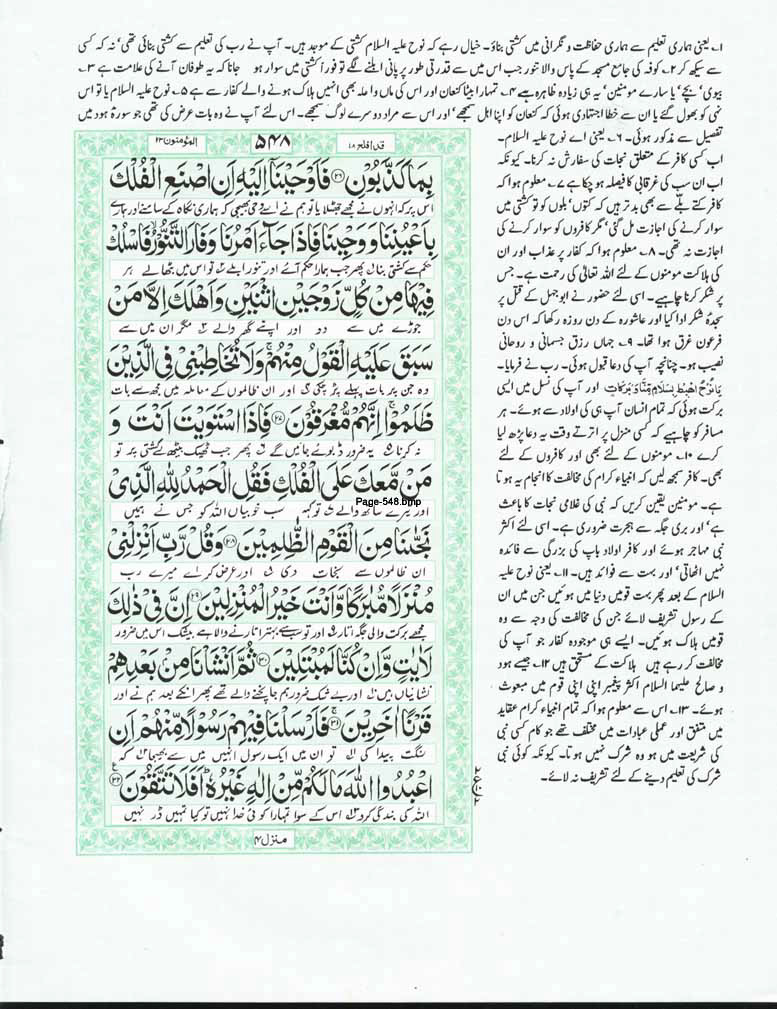 ۱۔ یعنی ہماری تعلیم سے ہماری حفاظت و نگرانی میں کشتی بناؤ۔ خیال رہے کہ نوح علیہ السلام کشتی کے موجد ہیں۔ آپ نے رب کی تعلیم سے کشتی بنائی تھی' نہ کہ کسی
سے سیکھ کر ۲۔ کوفہ کی جامع مسجد کے پاس والا تنور جب اس میں سے قدرتی طور پر پانی ابلنے لگے تو فوراً کشتی میں سوار ہو جانا کہ یہ طوفان آنے کی علامت ہے ۳۔
بیوی' بچے' یا سارے مومنین' یہ ہی زیادہ ظاہر ہے ۴۔ تمہارا بیٹا کنعان اور اس کی ماں واعلہ بھی انہیں ہلاک ہونے والے کفار سے ہے ۵۔ نوح علیہ السلام یا تو اس
نہی کو بھول گئے یا ان سے خطا اجتہادی ہوئی کہ کنعان کو اپنا اہل سمجھے' اور اس سے مراد دوسرے لوگ سمجھے۔ اس لئے آپ نے وہ بات عرض کی تھی جو سورۂ ہود میں
المؤمنون ۲۳
۵۴۸
قد افلح ۱۸
بِمَا كَذَّبُوْنِ ۲۶ فَاَوْحَيْنَاۤ اِلَيْهِ اَنِ اصْنَعِ الْفُلْكَ
اس پر کہ انہوں نے مجھے جھٹلایا تو ہم نے اسے وحی بھیجی کہ ہماری نگاہ کے سامنے اور ہمارے
بِاَعْيُنِنَا وَوَحْيِنَا فَاِذَا جَآءَ اَمْرُنَا وَفَارَ التَّنُّوْرُ فَاسْلُكْ
حکم سے کشتی بنا پھر جب ہمارا حکم آئے اور تنور ابلے تو اس میں بٹھالے ہر
فِيْهَا مِنْ كُلٍّ زَوْجَيْنِ اثْنَيْنِ وَاَهْلَكَ اِلَّا مَنْ
جوڑے میں سے دو اور اپنے گھر والے مگر ان میں سے
سَبَقَ عَلَيْهِ الْقَوْلُ مِنْهُمْ وَلَا تُخَاطِبْنِيْ فِي الَّذِيْنَ
وہ جن پر بات پہلے پڑ چکی اور ان ظالموں کے معاملہ میں مجھ سے بات
ظَلَمُوْا اِنَّهُمْ مُّغْرَقُوْنَ ۲۷ فَاِذَا اسْتَوَيْتَ اَنْتَ وَ
نہ کرنا یہ ضرور ڈبوئے جائیں گے پھر جب ٹھیک بیٹھ لے کشتی پر تو
مَنْ مَّعَكَ عَلَى الْفُلْكِ فَقُلِ الْحَمْدُ لِلّٰهِ الَّذِيْ
Page-548.bmp
اور تیرے ساتھ والے تو کہہ سب خوبیاں اللہ کو جس نے ہمیں
نَجّٰىنَا مِنَ الْقَوْمِ الظّٰلِمِيْنَ ۲۸ وَقُلْ رَّبِّ اَنْزِلْنِيْ
ان ظالموں سے نجات دی اور عرض کر اے میرے رب
مُنْزَلًا مُّبٰرَكًا وَّاَنْتَ خَيْرُ الْمُنْزِلِيْنَ ۲۹ اِنَّ فِيْ ذٰلِكَ
مجھے برکت والی جگہ اتار اور تو سب سے بہتر اتارنے والا ہے بیشک اس میں ضرور
لَاٰيٰتٍ وَّاِنْ كُنَّا لَمُبْتَلِيْنَ ۳۰ ثُمَّ اَنْشَاْنَا مِنْۢ بَعْدِهِمْ
نشانیاں ہیں اور بے شک ضرور ہم جانچنے والے تھے پھر انکے بعد ہم نے اور
قَرْنًا اٰخَرِيْنَ ۳۱ فَاَرْسَلْنَا فِيْهِمْ رَسُوْلًا مِّنْهُمْ اَنِ
سنگت پیدا کی تو ان میں ایک رسول انہیں میں سے بھیجا کہ
اعْبُدُوا اللّٰهَ مَا لَكُمْ مِّنْ اِلٰهٍ غَيْرُهٗ اَفَلَا تَتَّقُوْنَ ۳۲
اللہ کی بندگی کرو اس کے سوا تمہارا کوئی خدا نہیں تو کیا تمہیں ڈر نہیں
منزل ۴
تفصیل سے مذکور ہوئی۔ ۶۔ یعنی اے نوح علیہ السلام۔
اب کسی کافر کے متعلق نجات کی سفارش نہ کرنا۔ کیونکہ
اب ان سب کی غرقابی کا فیصلہ ہو چکا ہے ۷۔ معلوم ہوا کہ
کافر کتے بلے سے بھی بدتر ہیں کہ کتوں' بلوں کو تو کشتی میں
سوار کرنے کی اجازت مل گئی' مگر کافروں کو سوار کرنے کی
اجازت نہ تھی۔ ۸۔ معلوم ہوا کہ کفار پر عذاب اور ان
کی ہلاکت مومنوں کے لئے اللہ تعالیٰ کی رحمت ہے۔ جس
پر شکر کرنا چاہیے۔ اسی لئے حضور نے ابوجہل کے قتل پر
سجدۂ شکر ادا کیا اور عاشورہ کے دن روزہ رکھا کہ اس دن
فرعون غرق ہوا تھا۔ ۹۔ جہاں رزق جسمانی و روحانی
نصیب ہو۔ چنانچہ آپ کی دعا قبول ہوئی۔ رب نے فرمایا۔
يَانُوْحُ اهْبِطْ بِسَلَامٍ مِّنَّا وَبَرَكَاتٍ اور آپ کی نسل میں ایسی
برکت ہوئی کہ تمام انسان آپ ہی کی اولاد سے ہوئے۔ ہر
مسافر کو چاہیے کہ کسی منزل پر اترتے وقت یہ دعا پڑھ لیا
کرے ۱۰۔ مومنوں کے لئے بھی اور کافروں کے لئے
بھی۔ کافر سمجھ لیں کہ انبیاء کرام کی مخالفت کا انجام یہ ہوتا
ہے۔ مومنین یقین کریں کہ نبی کی غلامی نجات کا باعث
ہے' اور بری جگہ سے ہجرت ضروری ہے۔ اسی لئے اکثر
نبی مہاجر ہوئے اور کافر اولاد باپ کی بزرگی سے فائدہ
نہیں اٹھاتی' اور بہت سے فوائد ہیں۔ ۱۱۔ یعنی نوح علیہ
السلام کے بعد پھر بہت قومیں دنیا میں ہوئیں جن میں ان
کے رسول تشریف لائے جن کی مخالفت کی وجہ سے وہ
قومیں ہلاک ہوئیں۔ ایسے ہی موجودہ کفار جو آپ کی
مخالفت کر رہے ہیں ہلاکت کے مستحق ہیں ۱۲۔ جیسے ہود
و صالح علیہما السلام اکثر پیغمبر اپنی اپنی قوم میں مبعوث
ہوئے۔ ۱۳۔ اس سے معلوم ہوا کہ تمام انبیاء کرام عقاید
میں متفق اور عملی عبادات میں مختلف تھے جو کام کسی نبی
کی شریعت میں ہو وہ شرک نہیں ہوتا۔ کیونکہ کوئی نبی
شرک کی تعلیم دینے کے لئے تشریف نہ لائے۔